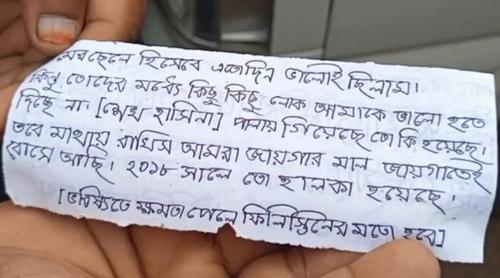 মেরছেলে হিসেবে এতোদিন ভালোই ছিলাম।
কিন্তু তোদের মধ্যে কিছু কিছু লোক আমাকে ভালো হতে
দিচ্ছে না। [শেখ হাসিনা] পালায় গিয়েছে তো কি হয়েছে।
তবে মাথায় রাখিস আমরা জায়গার মাল জায়গাতেই
বোসে আছি। ২০১৮ সালে তো হালকা হয়েছে।
[ভবিষ্যতে ক্ষমতা পেলে ফিলিস্তিনের মতো হবে]